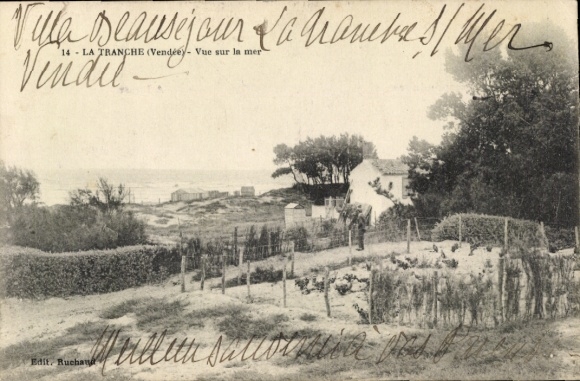 Villa Beauséjour La Tranche s/ Mer
14 - LA TRANCHE (Vendée) - Vue sur la mer
Vendée
Edit. Ruchaud
Meilleurs